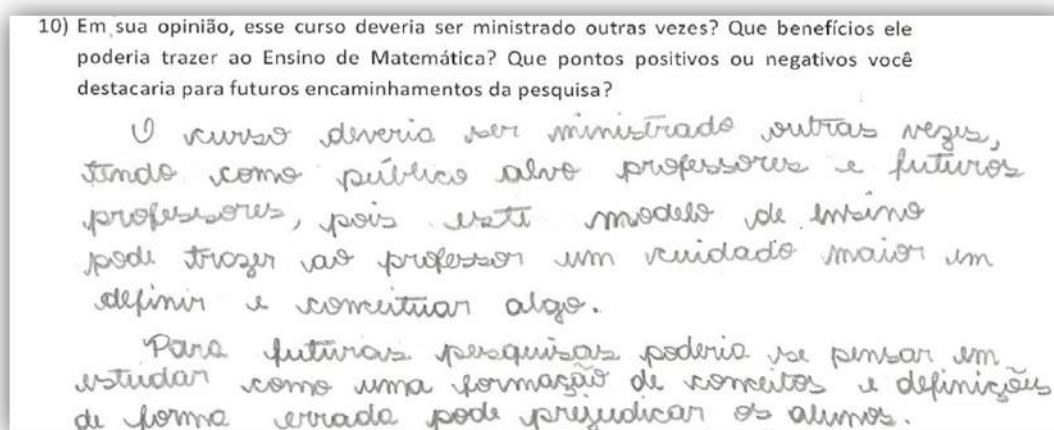 10) Em sua opinião, esse curso deveria ser ministrado outras vezes? Que benefícios ele
poderia trazer ao Ensino de Matemática? Que pontos positivos ou negativos você
destacaria para futuros encaminhamentos da pesquisa?
O curso deveria ser ministrado outras vezes,
tendo como público alvo professores e futuros
professores, pois este modelo de ensino
pode trazer ao professor um cuidado maior em
definir e conceituar algo.
Para futuras pesquisas poderia se pensar em
estudar como uma formação de conceitos e definições
de forma errada pode prejudicar os alunos.